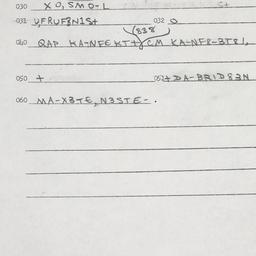 030 X O, S M O - L
031 U, F R U F 8 N 1 S + 032 O
(838)
040 QAP KA-NFEKT+, CM KA-NF8-3T8/,
050 + 052 + DA-BRID83N
060 MA-X3TE, N3STE-.